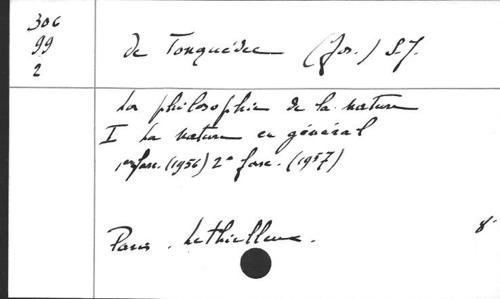 306
99
2
de Tonquédec (Jos.) S.J.
La philosophie de la nature
I La nature en général
1er fasc. (1956) 2e fasc. (1957)
Paris. Lethielleux.
8°